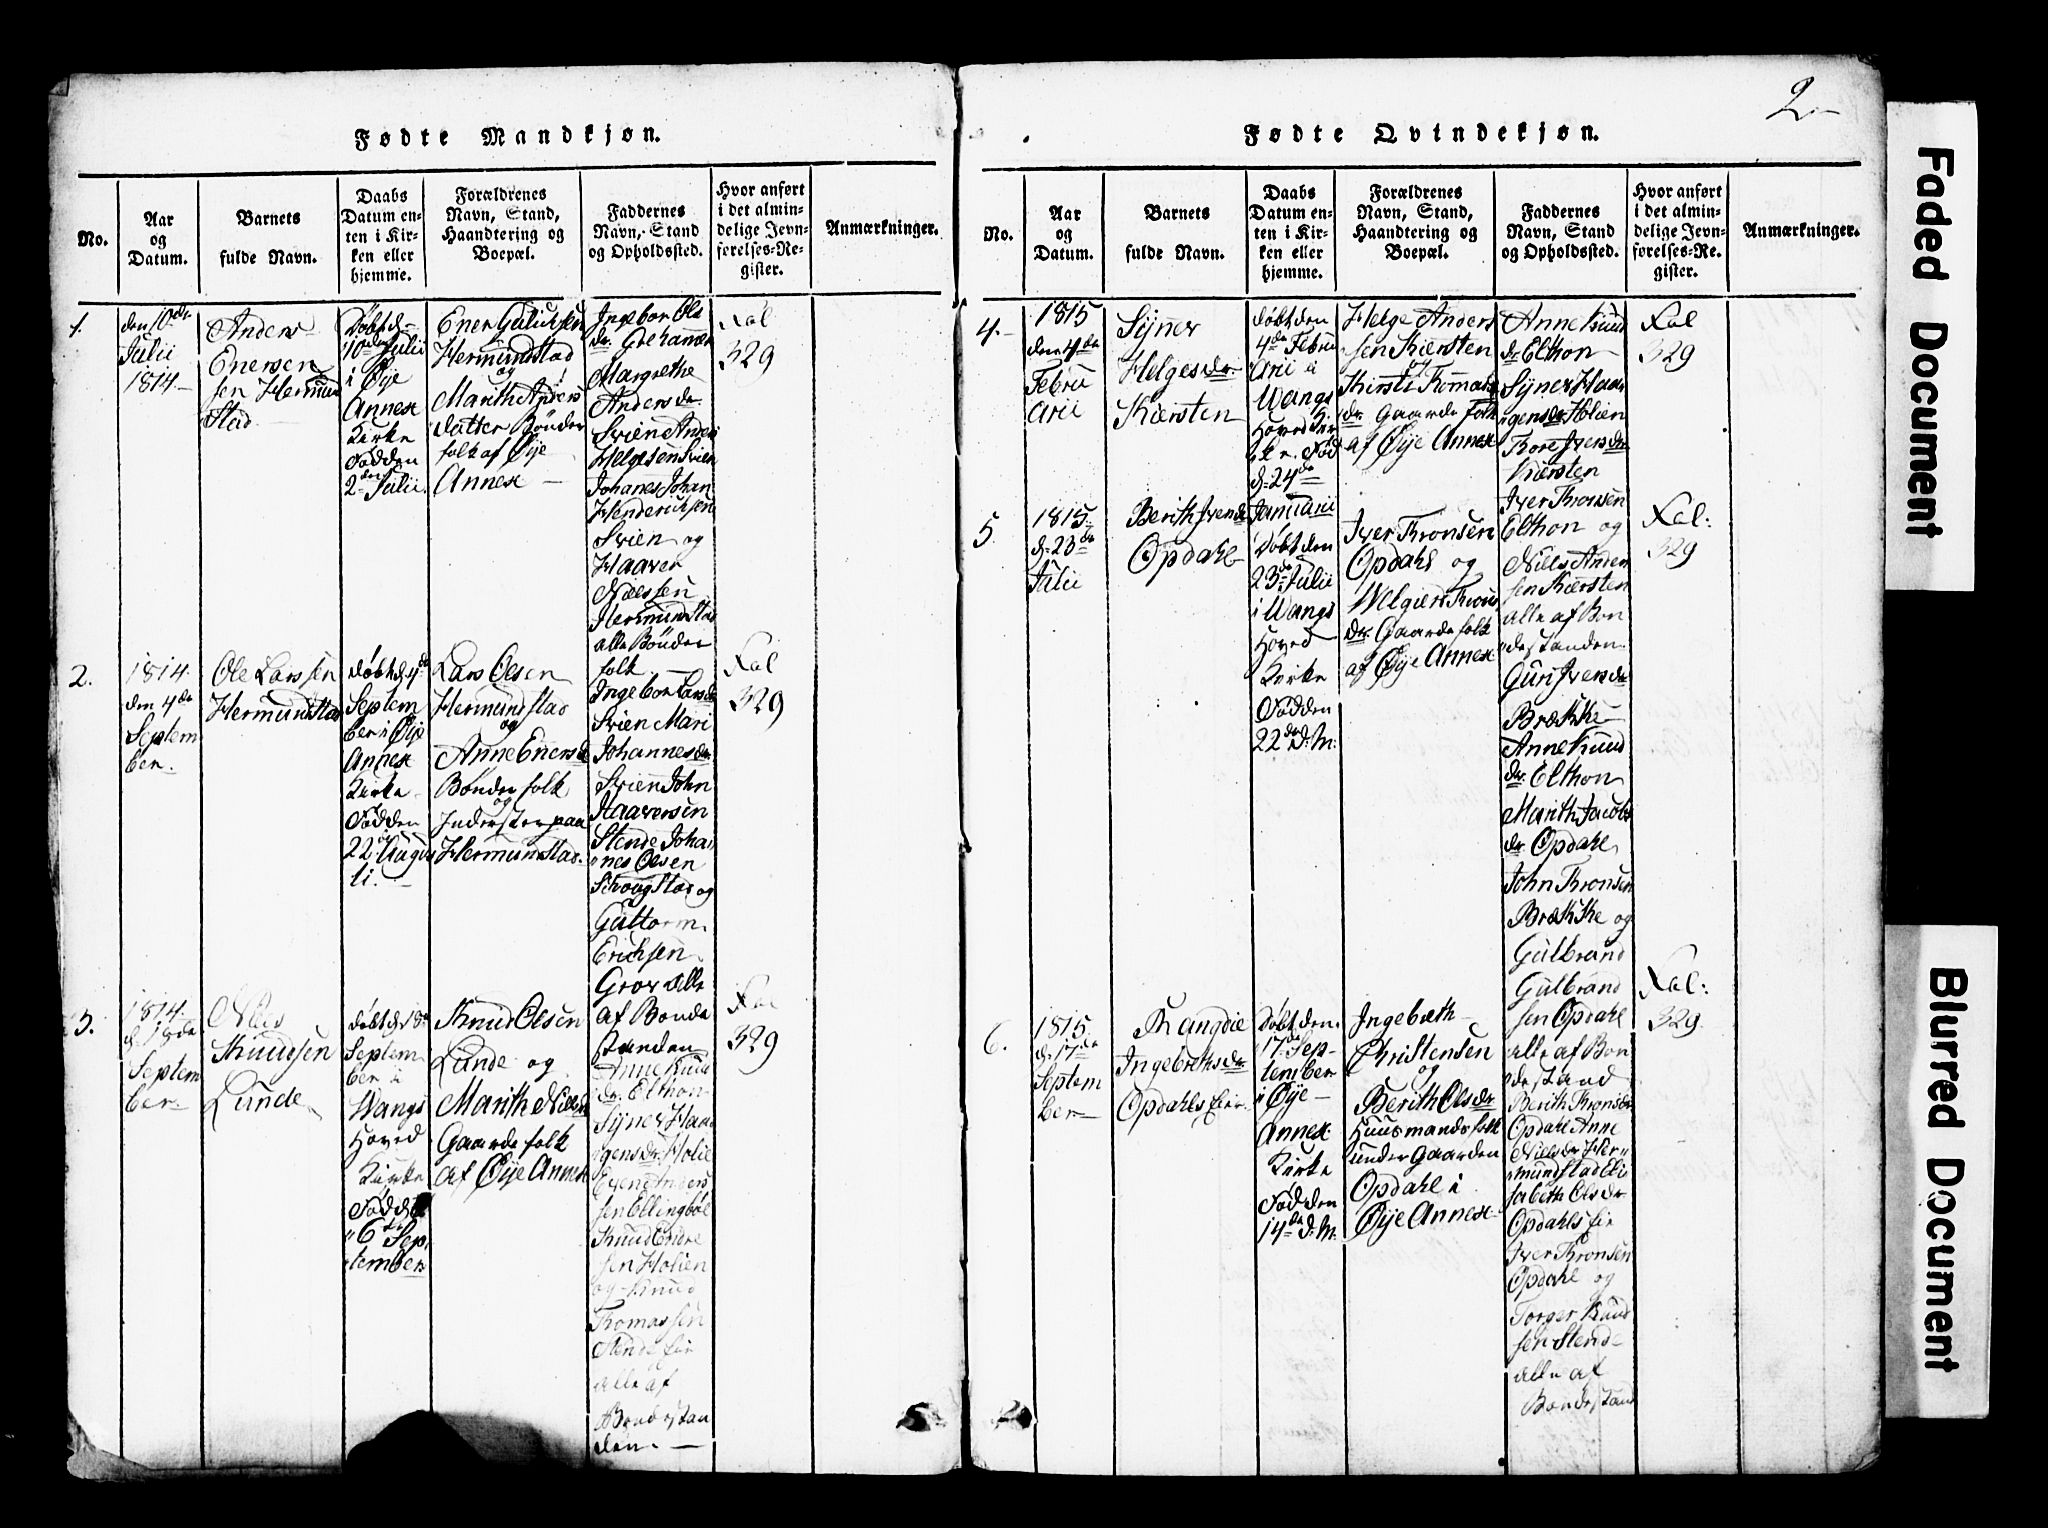 2
Fødte Mandkjøn.
No.
Aar
og
Datum.
Barnets
fulde Navn.
Daabs
Datum en-
ten i Kir-
ken eller
hjemme.
Forældrenes
Navn, Stand,
Haandtering og
Boepæl.
Faddernes
Navn, Stand
og Opholdssted.
Hvor anført
i det almin-
delige Jevn-
førelses-Re-
gister.
Anmærkninger.
1.
den 10de
Julii
1814
Anders
Enersen
sen Hermund
Stad
Døbt d
10de Julii
i Øye
Annex
Kirke
Fød den
2den Julii
Ener Gulichsen
Hermundstad
og
Marith Anders
datter Bønder
folk af Øye
Annex
Ingebor Ols
dr.
Margrethe
Andersdr
Svien Anders
Helgesen Svien
Johanes Johan
Henderichsen
Svien og
Haaver
Nielssen
Hermundstad
alle Bønder
folk
Fol
329
2.
1814.
den 4de
Septem
ber.
Ole Larssen
Hermundstad
døbt d. 4de
Septem
ber i Øye
Annex
Kirke
Fød den
22de Augus
ti.
Lars Olsen
Hermundstad
og
Anne Enersdr
Bønder folk
og
Inderster paa
Hermundstad.
Ingebor Larsdr
Svien Mari
Johannesdr
Svien John
Haaversen
Stende Johan
nes Olsen
Schougstad og
Guttorm
Erichsen
Grov alle
af Bonde
standen
Fol
329
3.
1814.
d. 18de
Septem
ber
Niels
Knudsen
Lunde
døbt d. 18de
Septem
ber i
Wangs
Hoved
Kirke
Fød d.
6te Sep
tember
Knud Olsen
Lunde og
Marith Nielsdr
Gaarde folk
af Øye Annex
Anne Knud
dr. Elthon
Syner Haa
gensdr. Holie
Evend Anders
sen Ellingbøe
Knud Endre
sen Holien
og Knud
Tomassen
Stende eir
alle af
Bondestan
den.
Fol
329
Fødte Qvindekjøn.
No.
Aar
og
Datum.
Barnets
fulde Navn.
Daabs
Datum en-
ten i Kir-
ken eller
hjemme.
Forældrenes
Navn, Stand,
Haandtering og
Boepæl.
Faddernes
Navn, Stand
og Opholdssted.
Hvor anført
i det almin-
delige Jevn-
førelses-Re-
gister.
Anmærkninger.
4.
1815
den 4de
Febru
arii
Syner
Helgesdr
Kiersten
døbt den
4de Febru
arii i
Wangs
Hoved Kir
ke. Fød
d. 24de
Januarii
Helge Anders
sen Kiersten
og
Kirsti Tomas
dr. Gaarde folk
af Øye Annex
Anne Knud
dr Elthon
Syner Haa
gensdr Holien
Tore Iversdr
Kiersten
Iver Tronsen
Elthon og
Niels Ander
sen Kiersten
alle af Bon
destanden.
Fol
329
5
1815.
d. 23de
Julii
Berith Iversdr
Opdahl
Døbt den
23de Julii
i Wangs
Hoved
Kirke
Fød den
22de D: M:
Iver Tronsen
Opdahl og
Welgier Trons
dr. Gaarde folk
af Øye Annex
Guri Iversdr
Brække
Anne Knud
dr. Elthon
Marith Jacobs
dr Opdahl
John Tronsen
Brække og
Gulbrand
Gulbrand
sen Opdahl
alle af Bon
destand
Fol:
329
6.
1815.
d. 17de
Septem
ber
Rangdie
Ingebrethsdr
Opdahls eir
Døbt den
17de Sep-
tember
i Øye
Annex
Kirke
Fød den
14de D: M:
Ingebreth
Christensen
og
Berith Olsdr
Huusmands folk
under Gaarden
Opdahl i
Øye Annex
Berith Tronsdr
Opdahl Anne
Nielsdr Her
mundstad Eli
sabeth Olsdr
Opdahls eir
Iver Tronsen
Opdahl og
Torger Knud
sen Stende
alle af
Bondestand
Fol:
329
Faded Document
Blurred Document